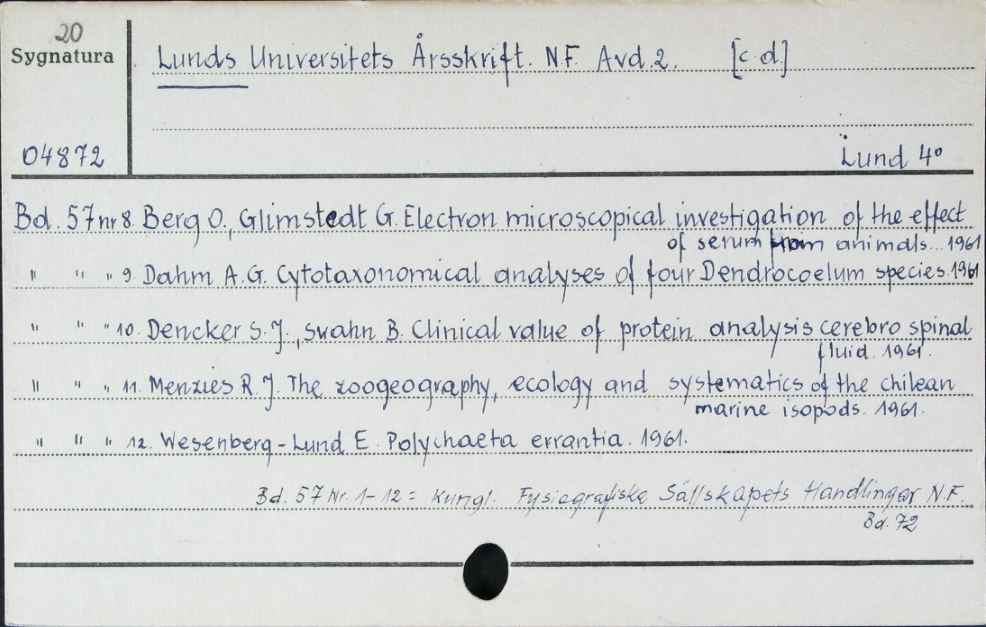 20
Sygnatura
Lunds Universitets Årsskrift. N.F. Avd. 2. [c.d.]
04872
Lund 4°
Bd. 57 nr 8. Berg O., Glimstedt G. Electron microscopical investigation of the effect
of serum from animals... 1961
" " " 9. Dahm A.G. Cytotaxonomical analyses of four Dendrocoelum species. 1961
" " " 10. Dencker S.J., Swahn B. Clinical value of protein analysis cerebro spinal
fluid. 1961.
" " " 11. Menzies R.J. The zoogeography, ecology and systematics of the chilean
marine isopods. 1961.
" " " 12. Wesenberg-Lund E. Polychaeta errantia. 1961.
Bd. 57 Nr. 1-12 = Kungl. Fysiografiske Sällskapets Handlingar N.F.
Bd. 72